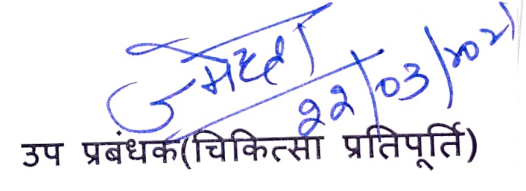 22/03/2021
उप प्रबंधक(चिकित्सा प्रतिपूर्ति)